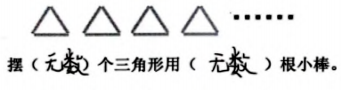 摆（无数）个三角形用（无数）根小棒。